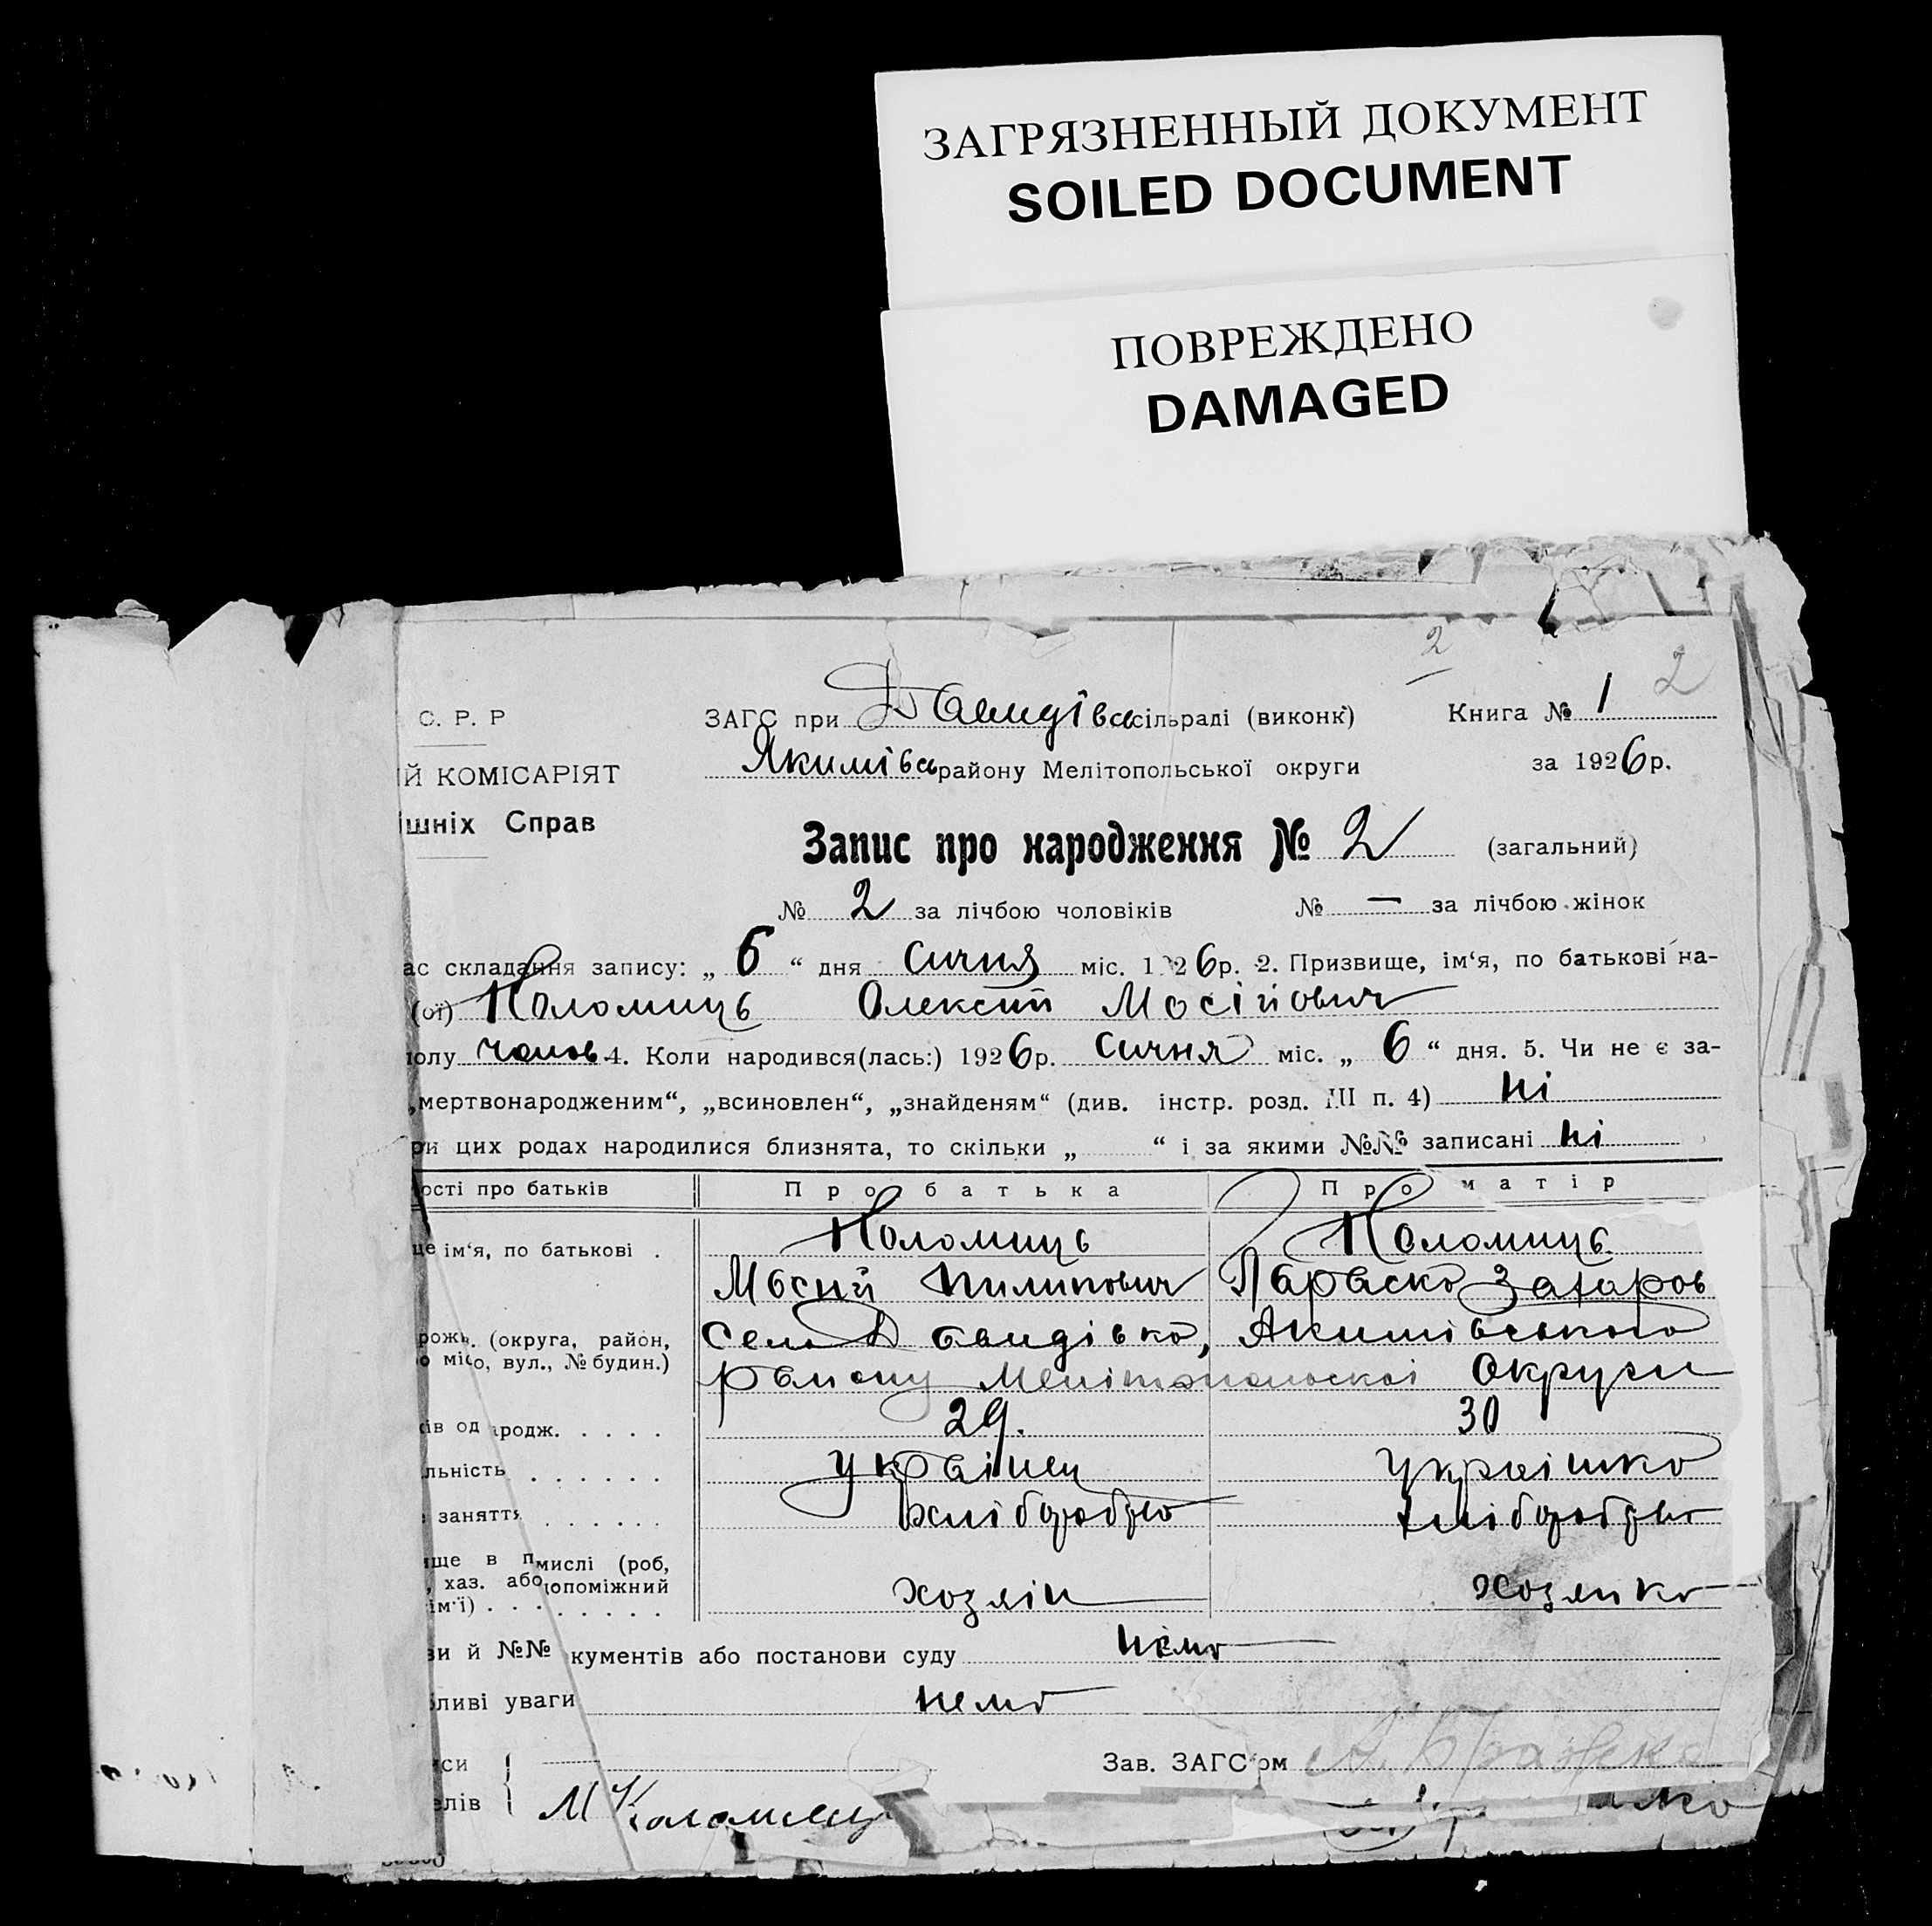 ЗАГРЯЗНЕННЫЙ ДОКУМЕНТ
SOILED DOCUMENT
ПОВРЕЖДЕНО
DAMAGED
2
2
С. Р. Р ЗАГС при Давидівсь сільраді (виконк) Книга № 1
Й КОМІСАРІЯТ Якимівсь району Мелітопольської округи за 1926 р.
ішніх Справ
Запис про народження № 2 (загальний)
№ 2 за лічбою чоловіків № — за лічбою жінок
ас складання запису: „ 6 “ дня Сичня міс. 1926 р. 2. Призвище, ім‘я, по батькові на-
(ої) Коломиць Олексий Мосійович
олу чолов 4. Коли народився(лась:) 1926 р. Сичня міс. „ 6 “ дня. 5. Чи не є за-
„мертвонародженим“, „всиновлен“, „знайденям“ (див. інстр. розд. III п. 4) ні
ри цих родах народилися близнята, то скільки „ “ і за якими №№ записані ні
ості про батьків Про батька Про матір
ще ім‘я, по батькові . Коломиць Коломиць
Мосий Пилипович Параска Захаров
рожь. (округа, район, село Давидівка, Якимівського
о місо, вул., № будин.) району Мелітопольскої Округи
ів од родж. . . . . 29. 30
льність . . . . . . українец українка
заняття . . . . . . хліборобство хліборобство
ще в пмислі (роб,
, хаз. або допоміжний хозяін хозяйка
ім‘ї) . . . . . . . .
ви й №№ кументів або постанови суду нема
ливі уваги нема
си Зав. ЗАГС‘ом
елів М Коломиец